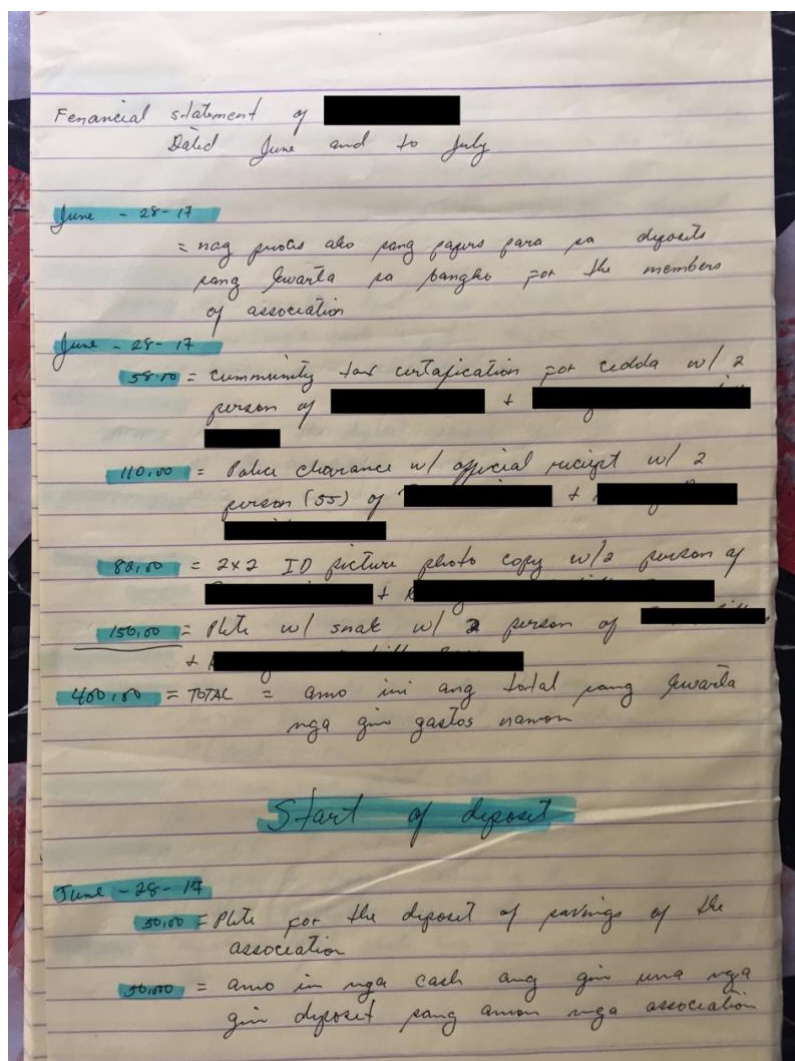 Fenancial statement of
Dated June and to July
June - 28-17
= nag proces ako sang papers para sa deposits
sang kwarta sa bangko for the members
of association
June - 28-17
58.00 = cummunity tax certafication for cedda w/ 2
person of +
110.00 = Police clearance w/ official reciept w/ 2
person (55) of +
82.00 = 2x2 ID picture photo copy w/2 person of
+
150.00 = Plite w/ snak w/ 2 person of
+
400.00 = TOTAL = amo ini ang total sang kwarta
nga gin gastos namon
Start of deposit
June - 28-17
50.00 = Plite for the deposit of savings of the
association
= amo in nga cash ang gin una nga
gin deposit sang amon nga association